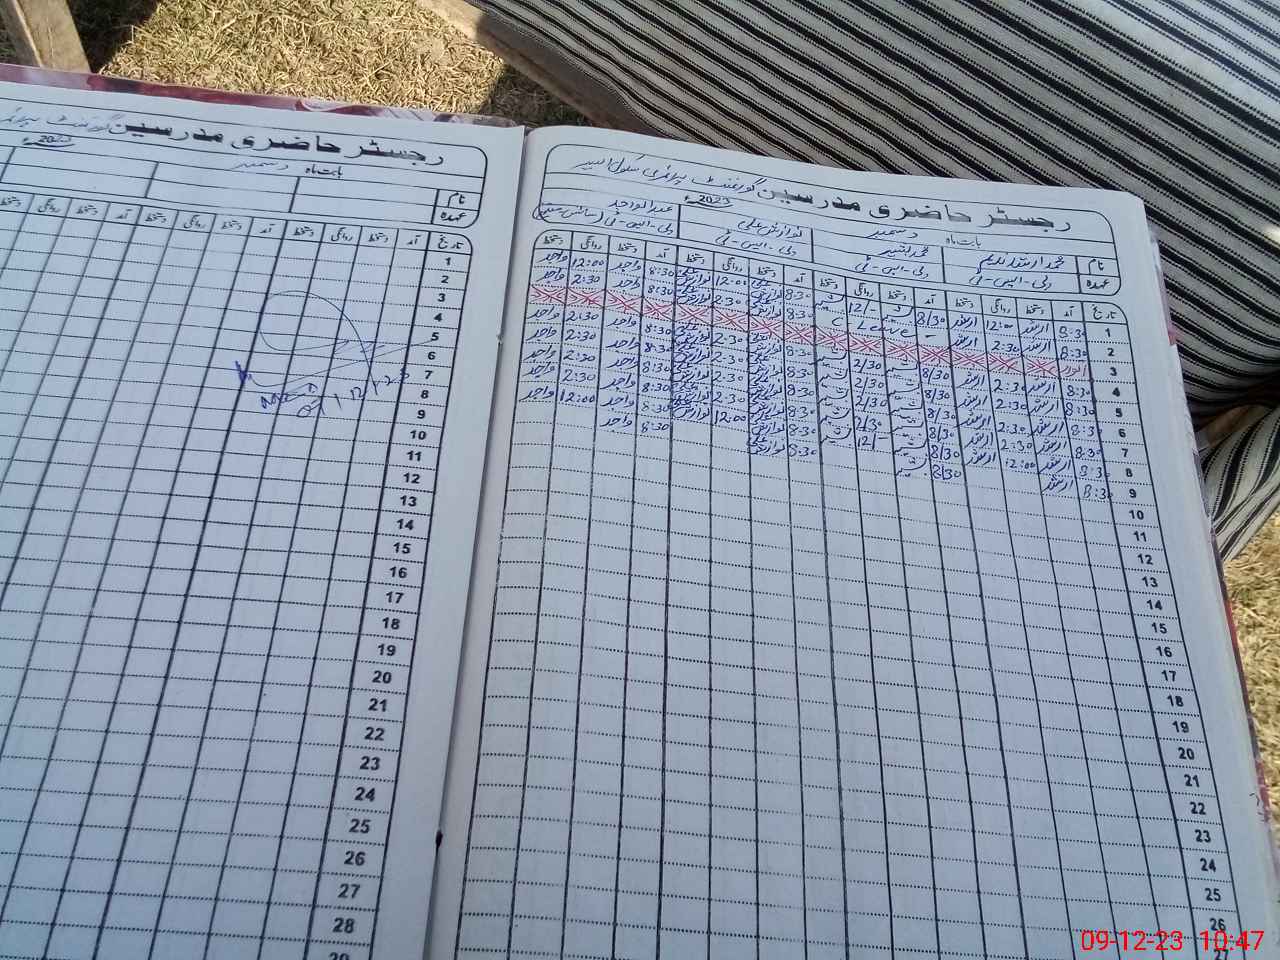 رجسٹر حاضری مدرسین گورنمنٹ
بابت ماہ دسمبر 2023ء
نام
عہدہ
تاریخ آمد دستخط روانگی دستخط آمد دستخط روانگی دستخط آمد دستخط روانگی دستخط
1
2
3
4
5
6
7
8
9
10
11
12
13
14
15
16
17
18
19
20
21
22
23
24
25
26
27
28
29
09/12/23
رجسٹر حاضری مدرسین گورنمنٹ پرائمری سکول
بابت ماہ دسمبر 2023ء
نام محمد ارشد ندیم محمد بشیر نوازش علی عبدالواجد
عہدہ پی-ایس-ٹی پی-ایس-ٹی پی-ایس-ٹی پی-ایس-ٹی
تاریخ آمد دستخط روانگی دستخط آمد دستخط روانگی دستخط آمد دستخط روانگی دستخط آمد دستخط روانگی دستخط
1 8:30 ارشد 12:00 ارشد 8/30 بشیر 12/- بشیر 8:30 نوازش علی 12:00 نوازش علی 8:30 واجد 12:00 واجد
2 8:30 ارشد 2:30 ارشد - C Leave - 8:30 نوازش علی 2:30 نوازش علی 8:30 واجد 2:30 واجد
3 اتوار
4 8:30 ارشد 2:30 ارشد 8/30 بشیر 2/30 بشیر 8:30 نوازش علی 2:30 نوازش علی 8:30 واجد 2:30 واجد
5 8:30 ارشد 2:30 ارشد 8/30 بشیر 2/30 بشیر 8:30 نوازش علی 2:30 نوازش علی 8:30 واجد 2:30 واجد
6 8:30 ارشد 2:30 ارشد 8/30 بشیر 2/30 بشیر 8:30 نوازش علی 2:30 نوازش علی 8:30 واجد 2:30 واجد
7 8:30 ارشد 2:30 ارشد 8/30 بشیر 2/30 بشیر 8:30 نوازش علی 2:30 نوازش علی 8:30 واجد 2:30 واجد
8 8:30 ارشد 12:00 ارشد 8/30 بشیر 12/- بشیر 8:30 نوازش علی 12:00 نوازش علی 8:30 واجد 12:00 واجد
9 8:30 ارشد 8/30 بشیر 8:30 نوازش علی 8:30 واجد
10
11
12
13
14
15
16
17
18
19
20
21
22
23
24
25
26
27
09-12-23 10:47